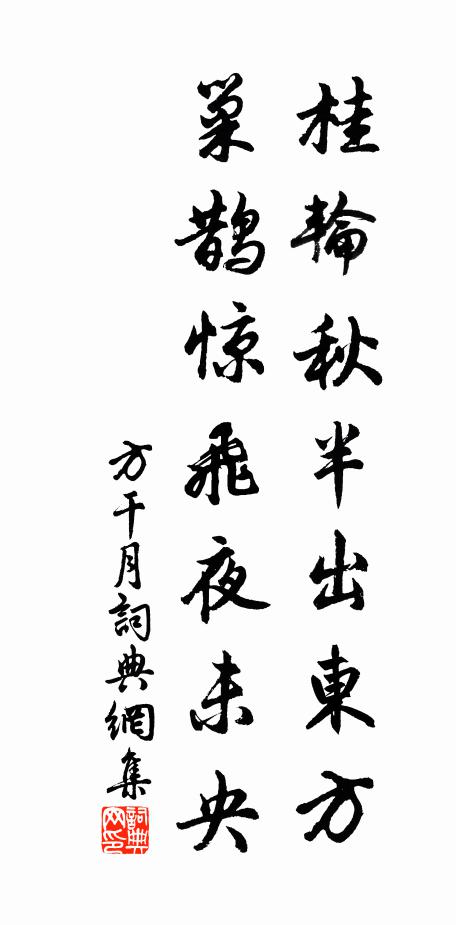 桂輪秋半出東方
巢鵲惊飛夜未央
方干月詞典網集
詞典網印